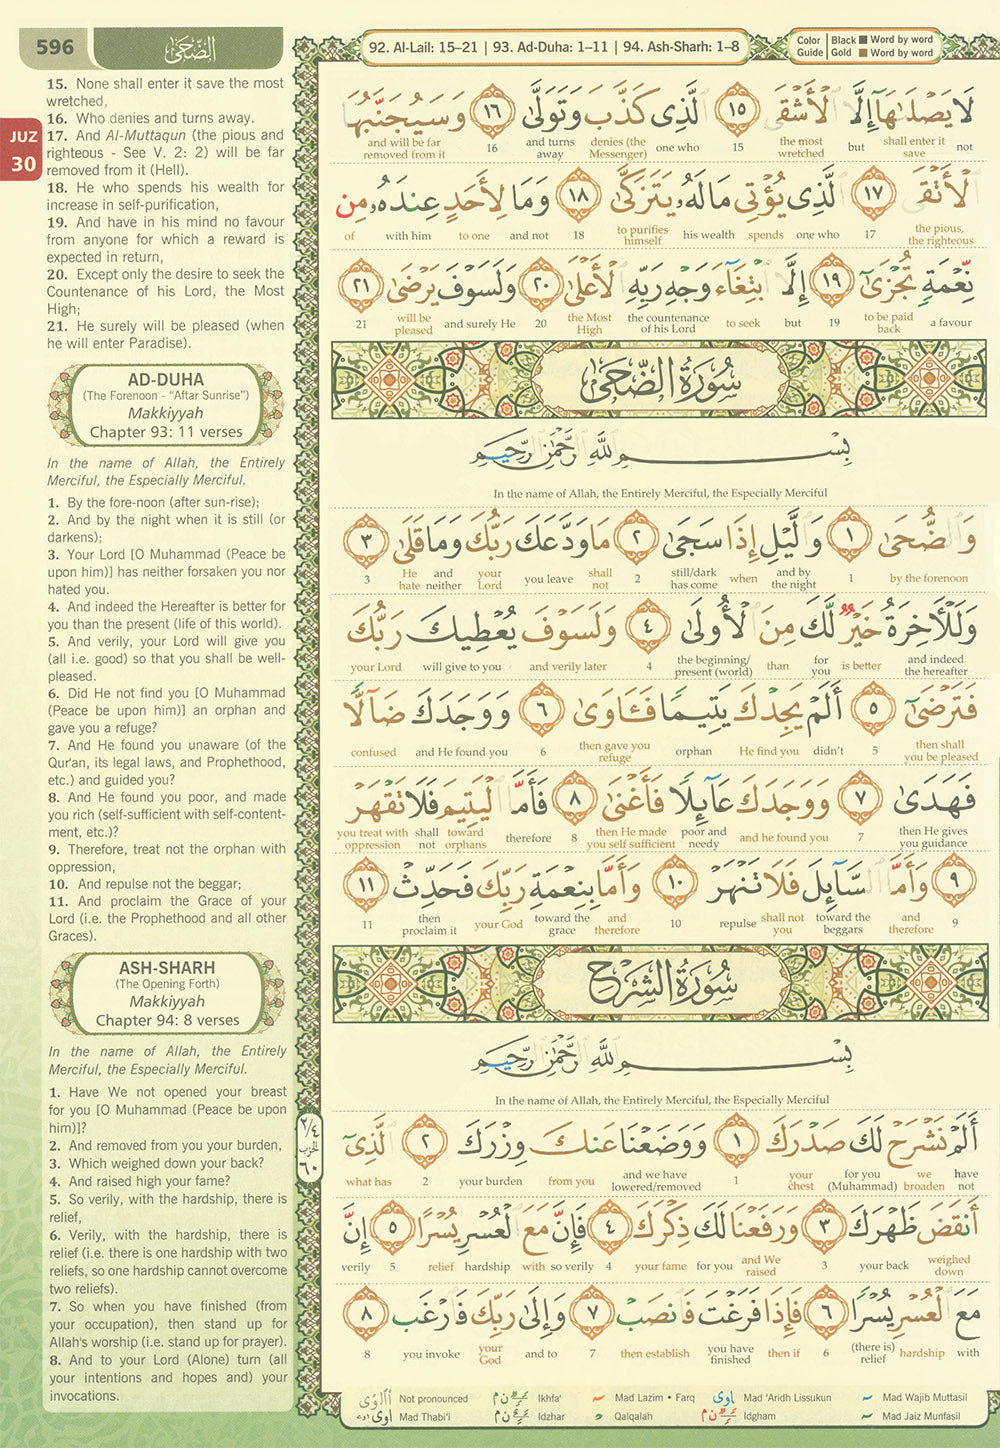 596
الضُّحَىٰ
92. Al-Lail: 15–21 | 93. Ad-Duha: 1–11 | 94. Ash-Sharh: 1–8
Color Guide | Black ■ Word by word
Gold ■ Word by word
JUZ
30
15. None shall enter it save the most
wretched,
16. Who denies and turns away.
17. And Al-Muttaqun (the pious and
righteous - See V. 2: 2) will be far
removed from it (Hell).
18. He who spends his wealth for
increase in self-purification,
19. And have in his mind no favour
from anyone for which a reward is
expected in return,
20. Except only the desire to seek the
Countenance of his Lord, the Most
High;
21. He surely will be pleased (when
he will enter Paradise).
AD-DUHA
(The Forenoon - “Aftar Sunrise”)
Makkiyyah
Chapter 93: 11 verses
In the name of Allah, the Entirely
Merciful, the Especially Merciful.
1. By the fore-noon (after sun-rise);
2. And by the night when it is still (or
darkens);
3. Your Lord [O Muhammad (Peace be
upon him)] has neither forsaken you nor
hated you.
4. And indeed the Hereafter is better for
you than the present (life of this world).
5. And verily, your Lord will give you
(all i.e. good) so that you shall be well-
pleased.
6. Did He not find you [O Muhammad
(Peace be upon him)] an orphan and
gave you a refuge?
7. And He found you unaware (of the
Qur'an, its legal laws, and Prophethood,
etc.) and guided you?
8. And He found you poor, and made
you rich (self-sufficient with self-content-
ment, etc.)?
9. Therefore, treat not the orphan with
oppression,
10. And repulse not the beggar;
11. And proclaim the Grace of your
Lord (i.e. the Prophethood and all other
Graces).
ASH-SHARH
(The Opening Forth)
Makkiyyah
Chapter 94: 8 verses
In the name of Allah, the Entirely
Merciful, the Especially Merciful.
1. Have We not opened your breast
for you [O Muhammad (Peace be upon
him)]?
2. And removed from you your burden,
3. Which weighed down your back?
4. And raised high your fame?
5. So verily, with the hardship, there is
relief,
6. Verily, with the hardship, there is
relief (i.e. there is one hardship with two
reliefs, so one hardship cannot overcome
two reliefs).
7. So when you have finished (from
your occupation), then stand up for
Allah's worship (i.e. stand up for prayer).
8. And to your Lord (Alone) turn (all
your intentions and hopes and) your
invocations.
لَا يَصْلَىٰهَآ إِلَّا ٱلْأَشْقَى ١٥ ٱلَّذِى كَذَّبَ وَتَوَلَّىٰ ١٦ وَسَيُجَنَّبُهَا
not shall enter it save but the most wretched 15 one who denies (the Messenger) and turns away 16 and will be far removed from it
ٱلْأَتْقَى ١٧ ٱلَّذِى يُؤْتِى مَالَهُۥ يَتَزَكَّىٰ ١٨ وَمَا لِأَحَدٍ عِندَهُۥ مِن
the pious, the righteous 17 one who spends his wealth to purifies himself 18 and not to one with him of
نِّعْمَةٍ تُجْزَىٰٓ ١٩ إِلَّا ٱبْتِغَآءَ وَجْهِ رَبِّهِ ٱلْأَعْلَىٰ ٢٠ وَلَسَوْفَ يَرْضَىٰ ٢١
a favour to be paid back 19 but to seek the countenance of his Lord the Most High 20 and surely He will be pleased 21
سُورَةُ الضُّحَىٰ
بِسْمِ ٱللَّهِ ٱلرَّحْمَٰنِ ٱلرَّحِيمِ
In the name of Allah, the Entirely Merciful, the Especially Merciful
وَٱلضُّحَىٰ ١ وَٱلَّيْلِ إِذَا سَجَىٰ ٢ مَا وَدَّعَكَ رَبُّكَ وَمَا قَلَىٰ ٣
by the forenoon 1 and by the night when still/dark has come 2 shall not you leave your Lord and neither He hate 3
وَلَلْـَٔاخِرَةُ خَيْرٌ لَّكَ مِنَ ٱلْأُولَىٰ ٤ وَلَسَوْفَ يُعْطِيكَ رَبُّكَ
and indeed the hereafter is better for you than the beginning/ present (world) 4 and verily later will give to you your Lord
فَتَرْضَىٰٓ ٥ أَلَمْ يَجِدْكَ يَتِيمًا فَـَٔاوَىٰ ٦ وَوَجَدَكَ ضَآلًّا
then shall you be pleased 5 didn't He find you orphan then gave you refuge 6 and He found you confused
فَهَدَىٰ ٧ وَوَجَدَكَ عَآئِلًا فَأَغْنَىٰ ٨ فَأَمَّا ٱلْيَتِيمَ فَلَا تَقْهَرْ
then He gives you guidance 7 and he found you poor and needy then He made you self sufficient 8 therefore toward orphans shall not you treat with oppression
٩ وَأَمَّا ٱلسَّآئِلَ فَلَا تَنْهَرْ ١٠ وَأَمَّا بِنِعْمَةِ رَبِّكَ فَحَدِّثْ ١١
9 and therefore toward the beggars shall not you repulse 10 and therefore toward the grace your God then proclaim it 11
سُورَةُ الشَّرْحِ
بِسْمِ ٱللَّهِ ٱلرَّحْمَٰنِ ٱلرَّحِيمِ
In the name of Allah, the Entirely Merciful, the Especially Merciful
أَلَمْ نَشْرَحْ لَكَ صَدْرَكَ ١ وَوَضَعْنَا عَنكَ وِزْرَكَ ٢ ٱلَّذِىٓ
have not we broaden for you (Muhammad) your chest 1 and we have lowered/removed from you your burden 2 what has
أَنقَضَ ظَهْرَكَ ٣ وَرَفَعْنَا لَكَ ذِكْرَكَ ٤ فَإِنَّ مَعَ ٱلْعُسْرِ يُسْرًا ٥ إِنَّ
weighed down your back 3 and We raised for you your fame 4 so verily with hardship relief 5 verily
مَعَ ٱلْعُسْرِ يُسْرًا ٦ فَإِذَا فَرَغْتَ فَٱنصَبْ ٧ وَإِلَىٰ رَبِّكَ فَٱرْغَب ٨
with hardship (there is) relief 6 then if you have finished then establish 7 and to your God you invoke 8
٢/٤ الحزب ٦٠
Not pronounced Ikhfa' Mad Lazim • Farq Mad 'Aridh Lissukun Mad Wajib Muttasil
Mad Thabi'i Idzhar Qalqalah Idgham Mad Jaiz Munfasil